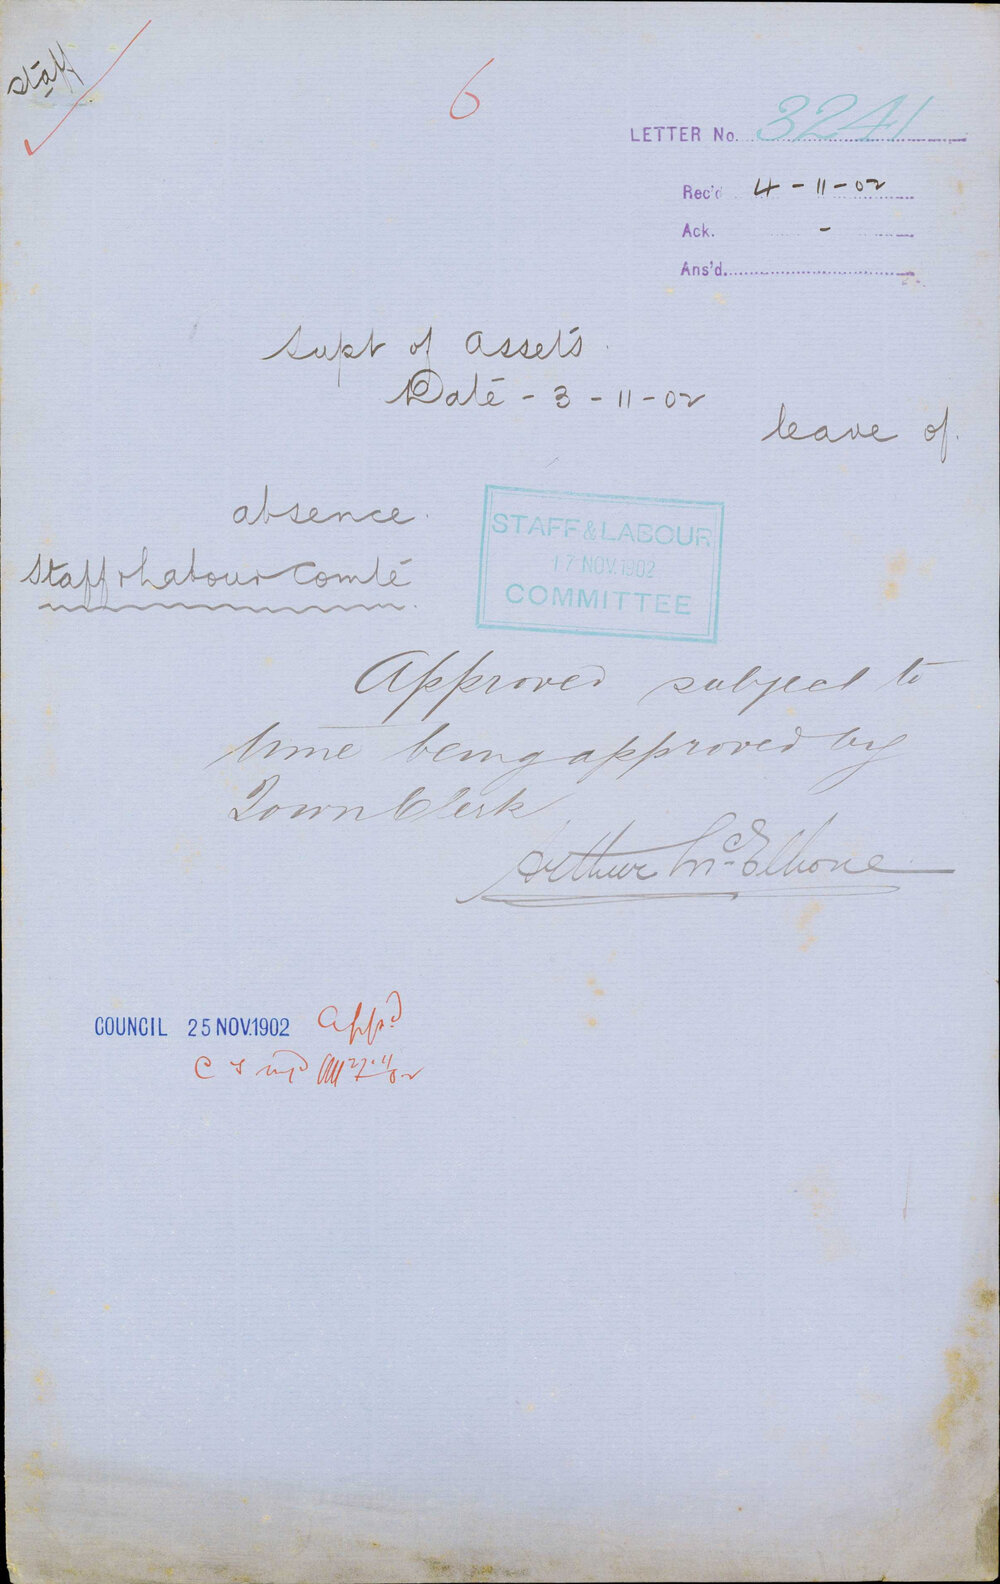 Staff
6
LETTER No. 3241
Rec'd 4-11-02
Ack. -
Ans'd.
Supt of Assets
Date - 3-11-02
leave of
absence.
Staff & Labour Comte
STAFF & LABOUR
17 NOV. 1902
COMMITTEE
Approved subject to
time being approved by
Town Clerk
Arthur McElhone
COUNCIL 25 NOV. 1902 Appd
27.11.02